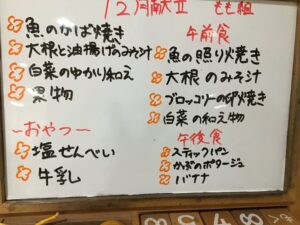 12月献立 もも組
魚のかば焼き
大根と油揚げのみそ汁
白菜のゆかり和え
果物
〜おやつ〜
塩せんべい
牛乳
午前食
魚の照り焼き
大根のみそ汁
ブロッコリーの卵焼き
白菜の和え物
午後食
スティックパン
かぶのポタージュ
バナナ